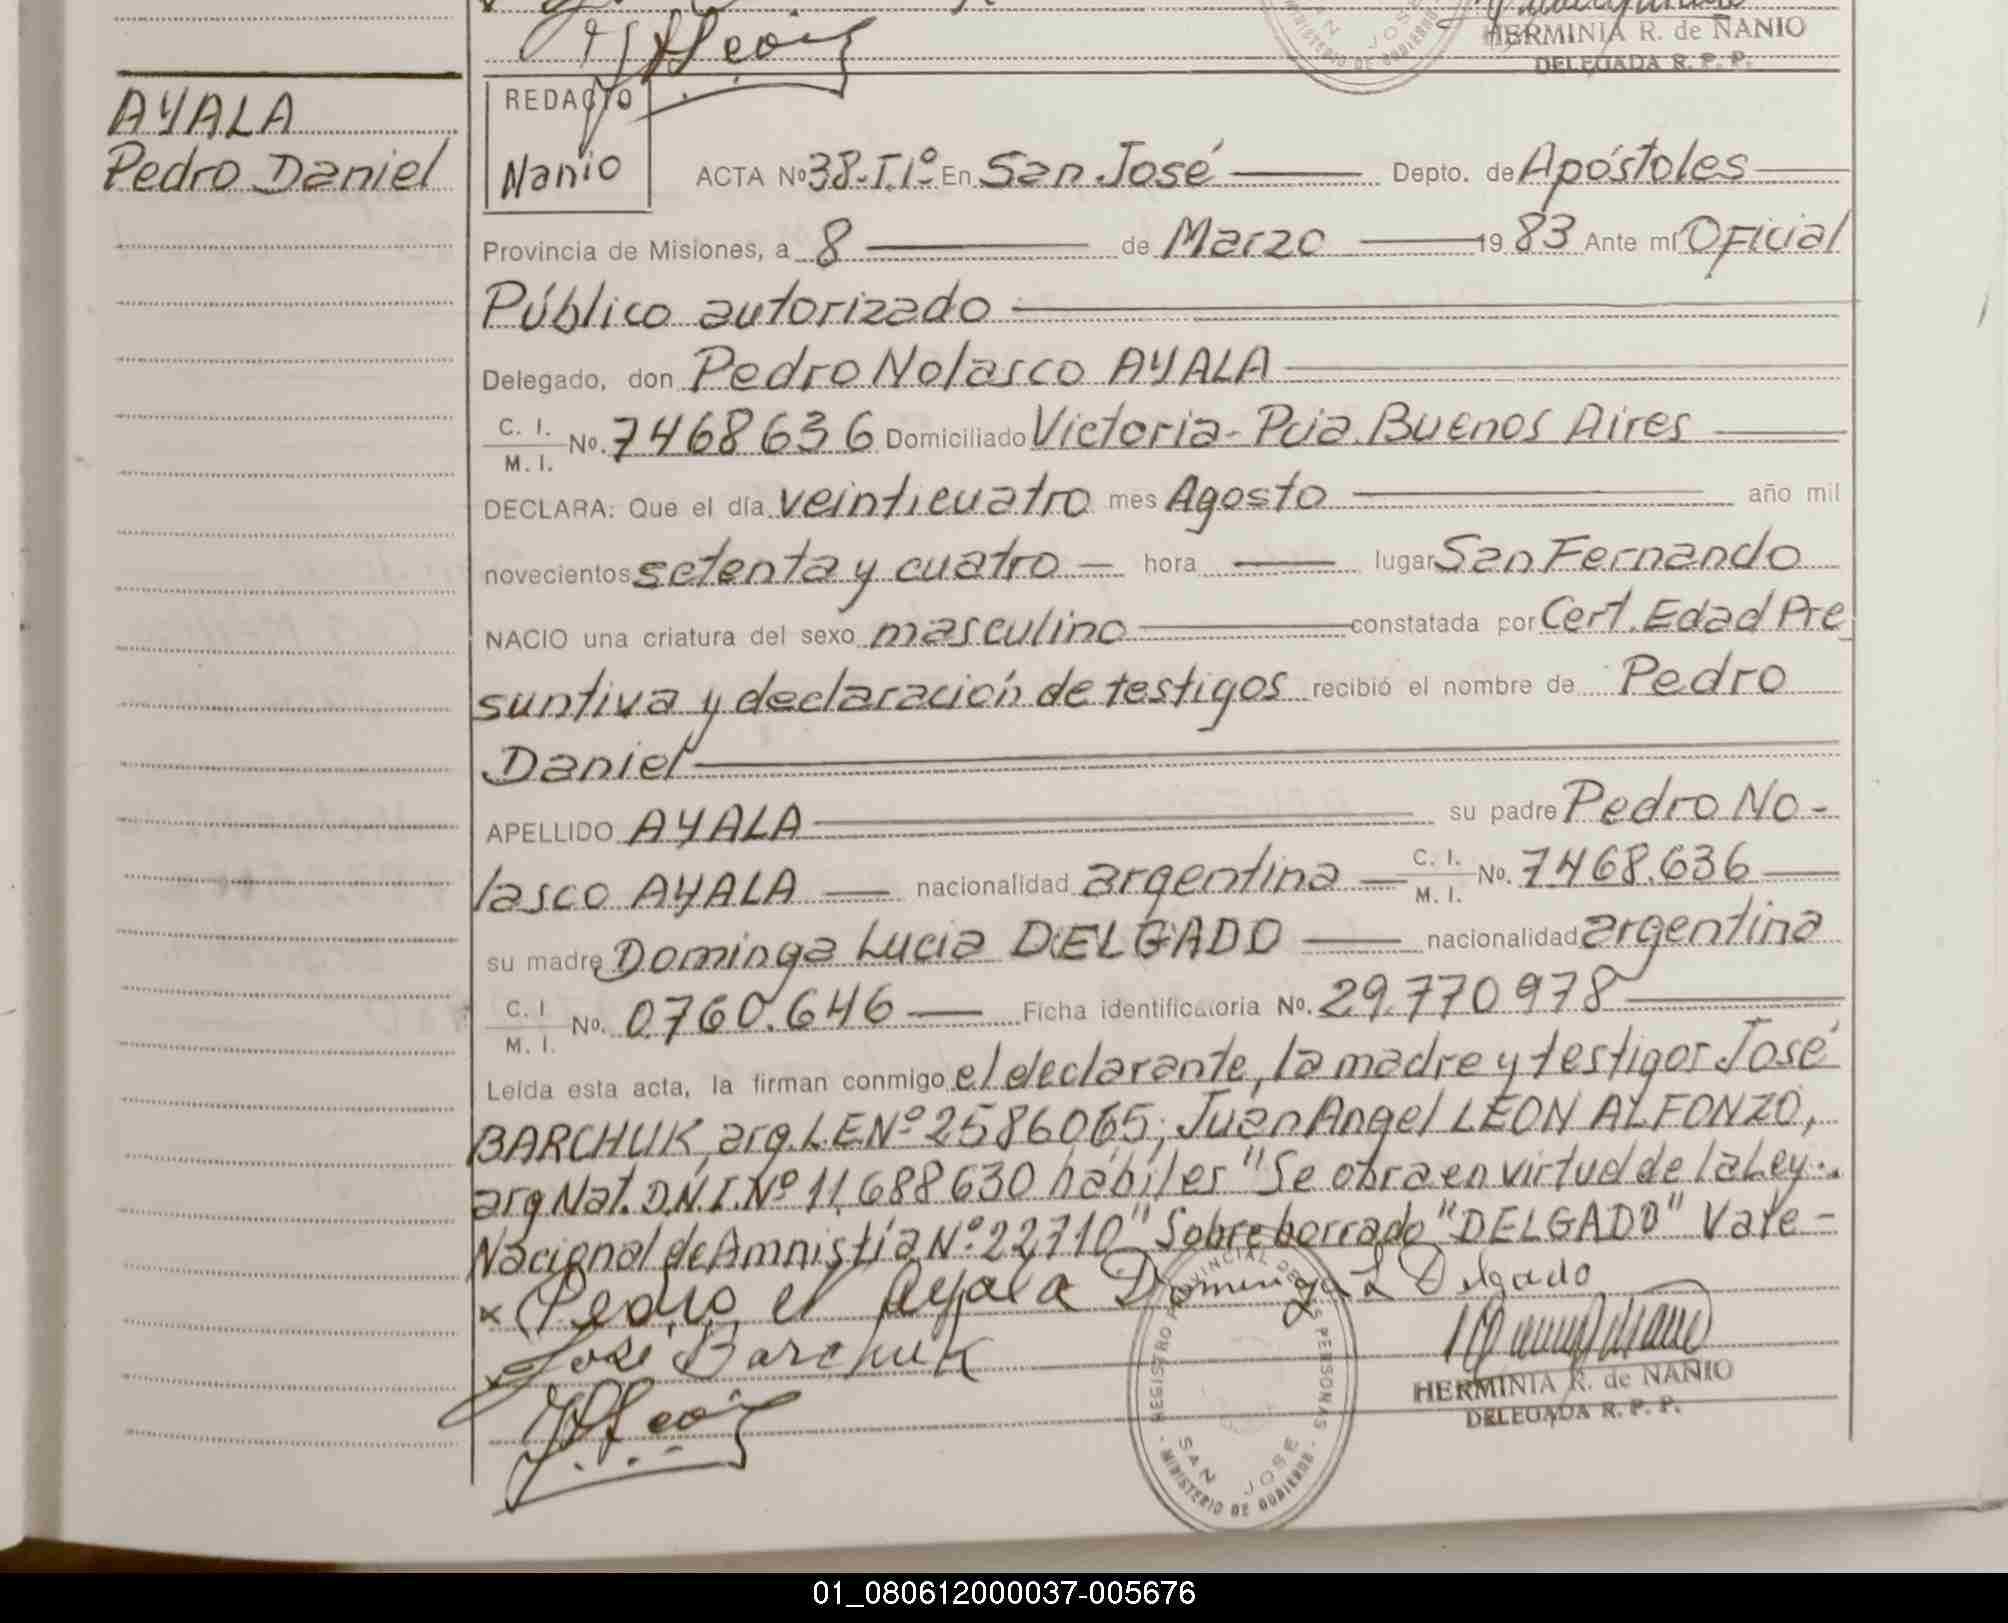 HERMINIA R. de NANIO
DELEGADA R. P. P.
AYALA
Pedro Daniel
REDACTO
Nanio
ACTA Nº 38-T.1º En San José Depto. de Apóstoles
Provincia de Misiones, a 8 de Marzo 19 83 Ante mí Oficial
Público autorizado
Delegado, don Pedro Nolasco AYALA
C. I. M. I. Nº. 7468636 Domiciliado Victoria-Pcia. Buenos Aires
DECLARA: Que el día veinticuatro mes Agosto año mil
novecientos setenta y cuatro — hora — lugar San Fernando
NACIO una criatura del sexo masculino constatada por Cert. Edad Pre
suntiva y declaración de testigos recibió el nombre de Pedro
Daniel
APELLIDO AYALA su padre Pedro No-
lasco AYALA — nacionalidad argentina — C. I. M. I. Nº. 7.468.636
su madre Dominga Lucia DELGADO — nacionalidad argentina
C. I M. I. Nº. 0.760.646 — Ficha identificatoria Nº. 29.770.978
Leída esta acta, la firman conmigo el declarante, la madre y testigos José
BARCHUK, arg. L.E.Nº 2586065; Juan Angel LEON ALFONZO,
arg Nat. D.N.I. Nº 11.688630 hábiles "Se obra en virtud de la Ley
Nacional de Amnistía Nº 22710" Sobreborrado "DELGADO" Vale-
x Pedro N Ayala Dominga L Delgado
José Barchuk
REGISTRO PROVINCIAL DE LAS PERSONAS
SAN JOSE
- MINISTERIO DE GOBIERNO -
HERMINIA R. de NANIO
DELEGADA R. P. P.
01_080612000037-005676